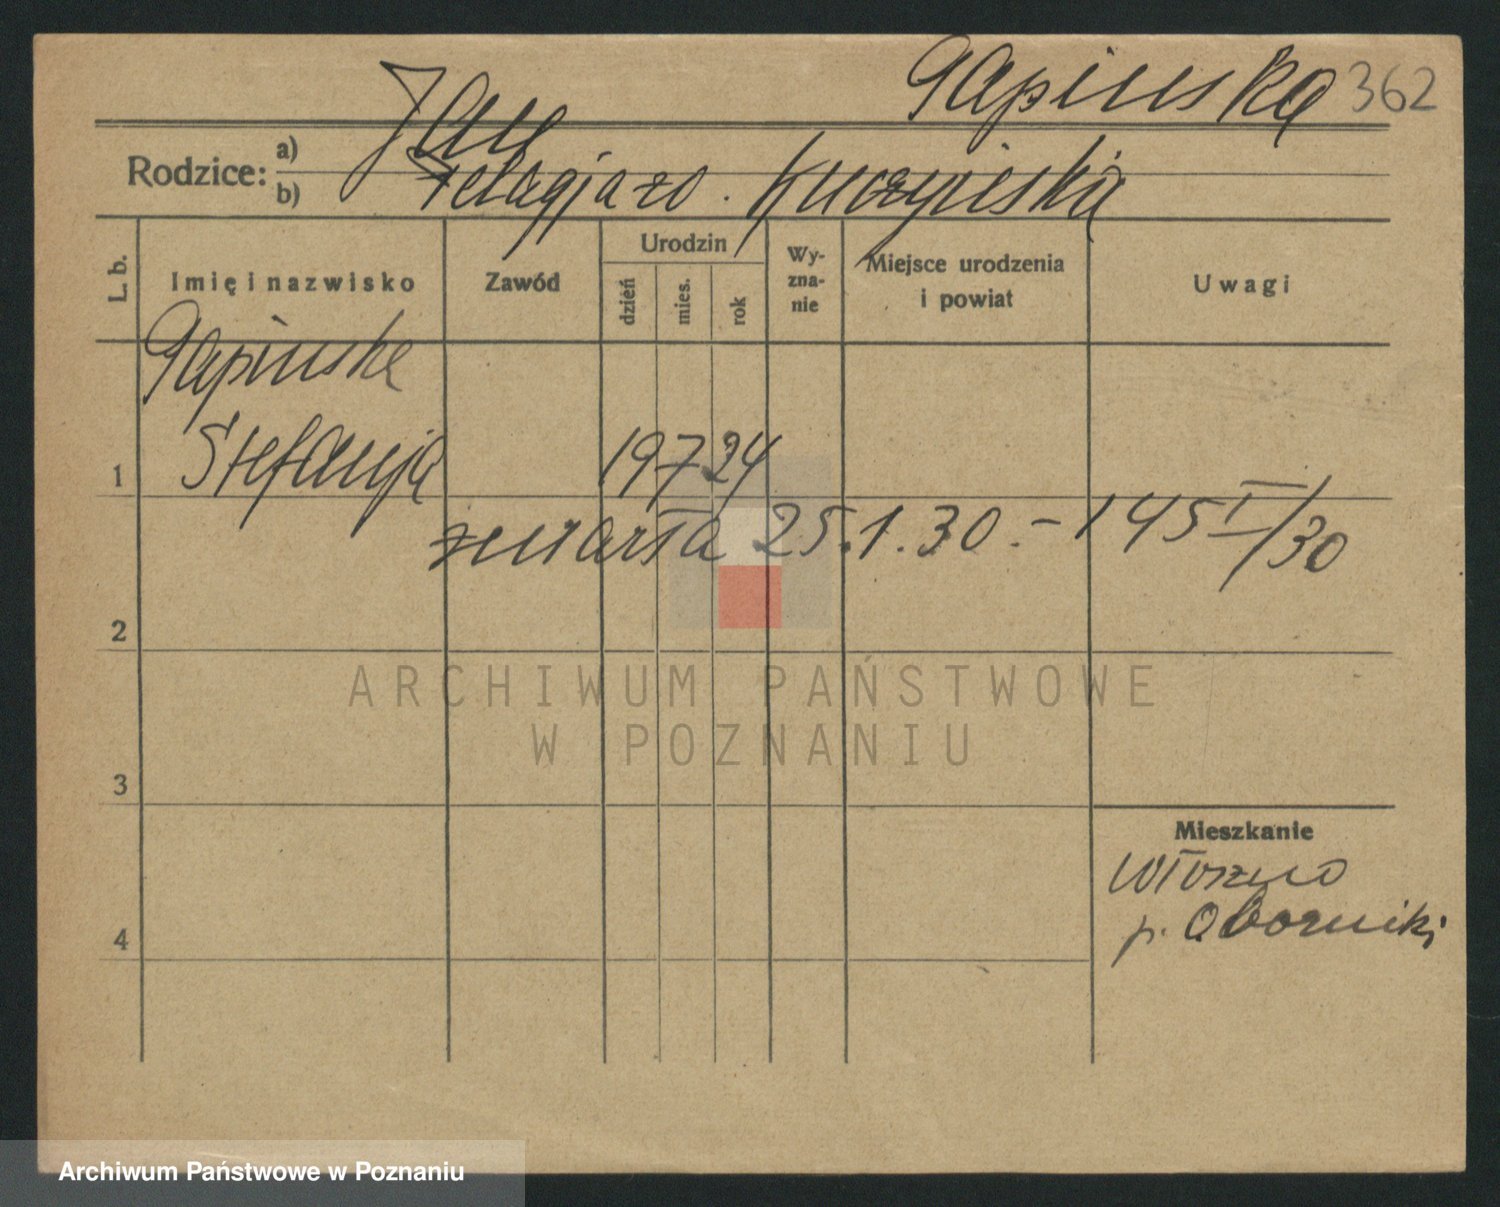 Gapinska 362
Rodzice: a) Jan
b) Pelagja zd. Kuczyńska
L. b. Imię i nazwisko Zawód Urodzin dzień mies. rok Wyznanie Miejsce urodzenia i powiat Uwagi
Gapinska
1 Stefanja 19 7 24
zmarła 25.1.30. - 145 I/30
2
ARCHIWUM PAŃSTWOWE
W POZNANIU
3
Mieszkanie
p. Oborniki
4
Archiwum Państwowe w Poznaniu